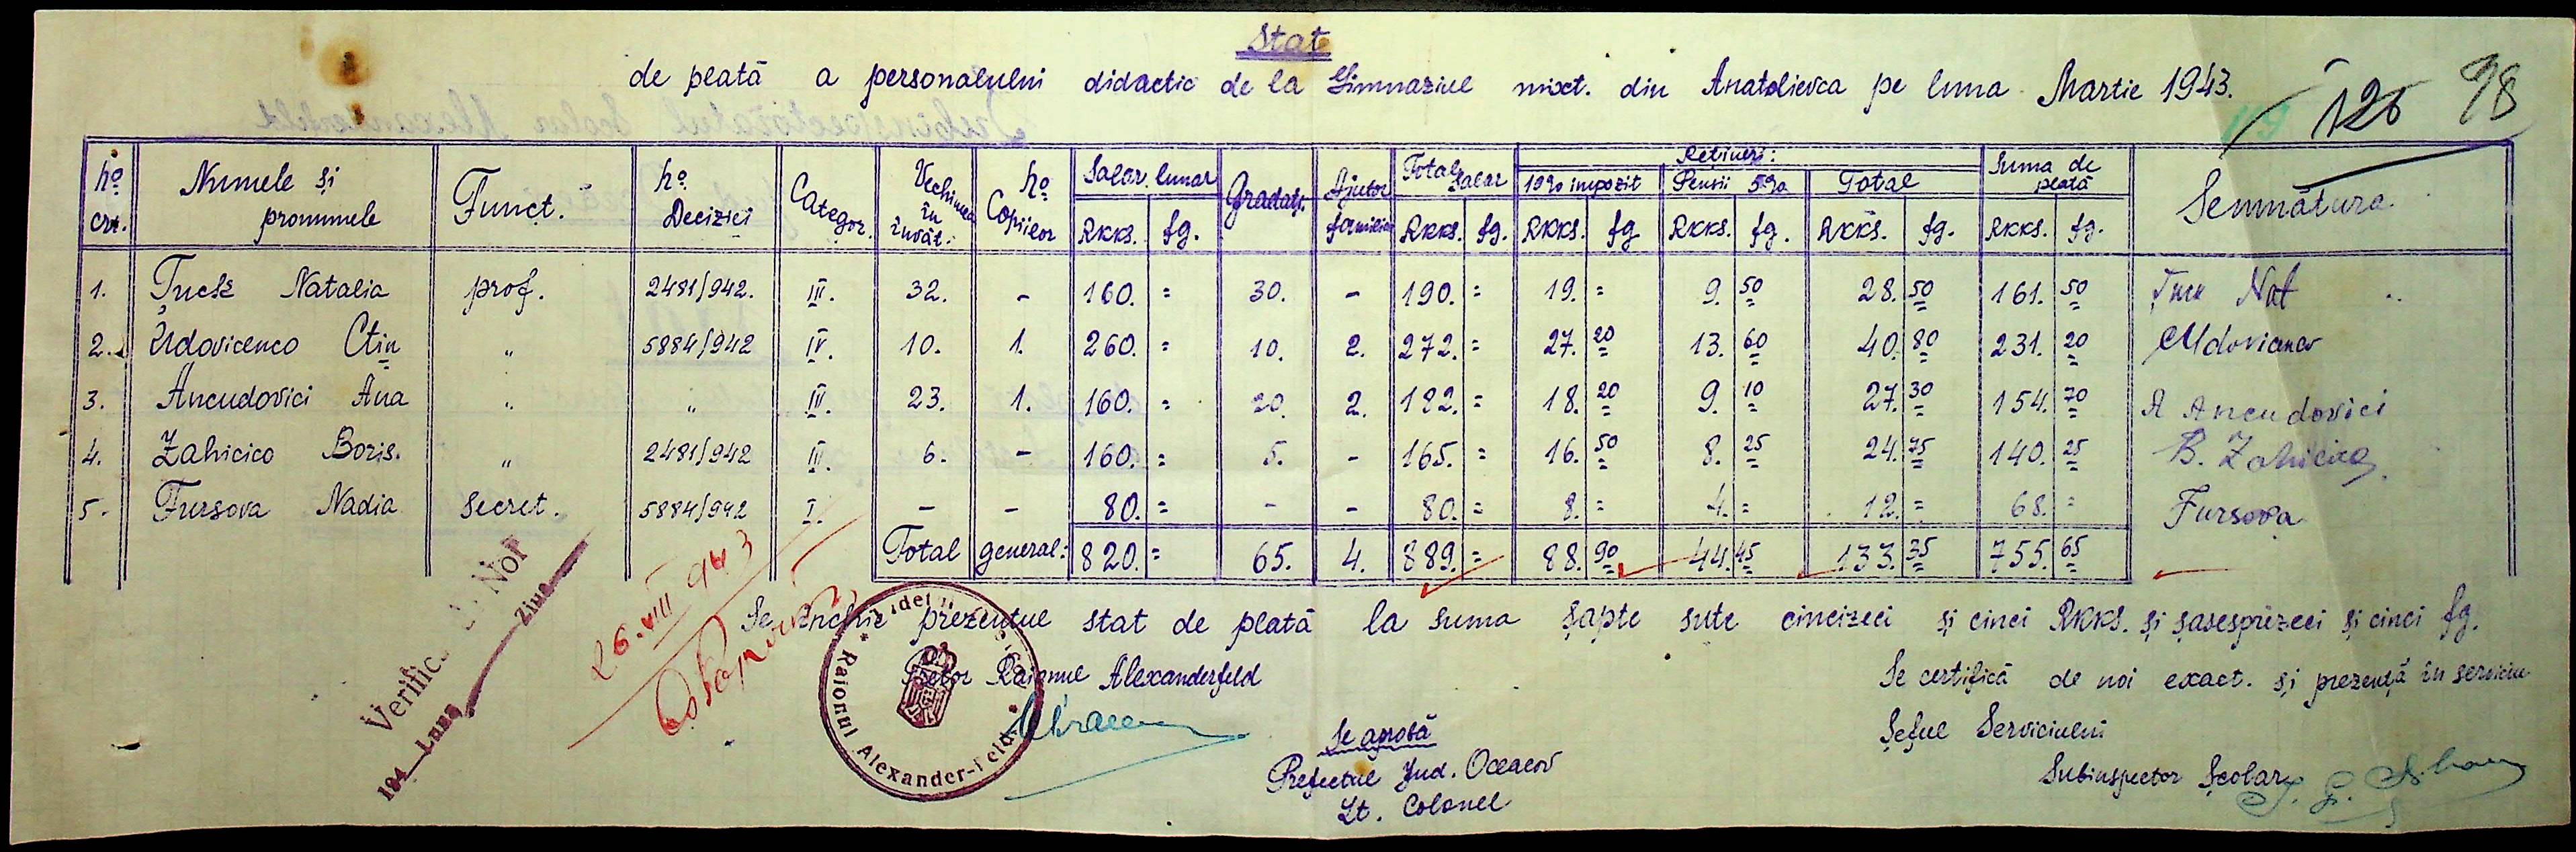 Stat
de plată a personalului didactic de la Gimnaziul mixt. din Anatolievca pe luna Martie 1943.
126 98
No crt. Numele și pronumele Funct. No Deciziei Categor. Vechimea în învăt. No Copiilor Salar lunar Gradați. Ajutor familiar Total Salar Rețineri: Suma de plată Semnătura
10% impozit Pensii 5% Total
RKKS. fg. RKKS. fg. RKKS. fg RKKS. fg. RKKS. fg. RKKS. fg.
1. Țuck Natalia prof. 2481/942. III. 32. - 160. = 30. - 190. = 19. = 9. 50 28. 50 161. 50 Nat
2. Udovicenco Ctin " 5884/942 IV. 10. 1. 260. = 10. 2. 272. = 27. 20 13. 60 40. 80 231. 20
3. Ancudovici Ana " " III. 23. 1. 160. = 20. 2. 182. = 18. 20 9. 10 27. 30 154. 70 A Ancudovici
4. Zahicico Boris. " 2481/942 III. 6. - 160. = 5. - 165. = 16. 50 8. 25 24. 75 140. 25 B. Zahicico
5. Fursova Nadia Secret. 5884/942 I. - - 80. = - - 80. = 8. = 4. = 12. = 68. = Fursova
Total general: 820. = 65. 4. 889. = 88. 90 44. 45 133. 35 755. 65
Se închie prezentul stat de plată la suma șapte sute cincizeci și cinci RKKS. și șasesprezeci și cinci fg.
Pretor Raionul Alexanderfeld
Se certifică de noi exact. și prezență în serviciu
Șeful Serviciului
Subinspector Școlar
Se aprobă
Prefectul Jud. Oceacov
Lt. Colonel
Raionul Alexander-feld
26.VIII 943
Verific Noi
194 Luna Ziua